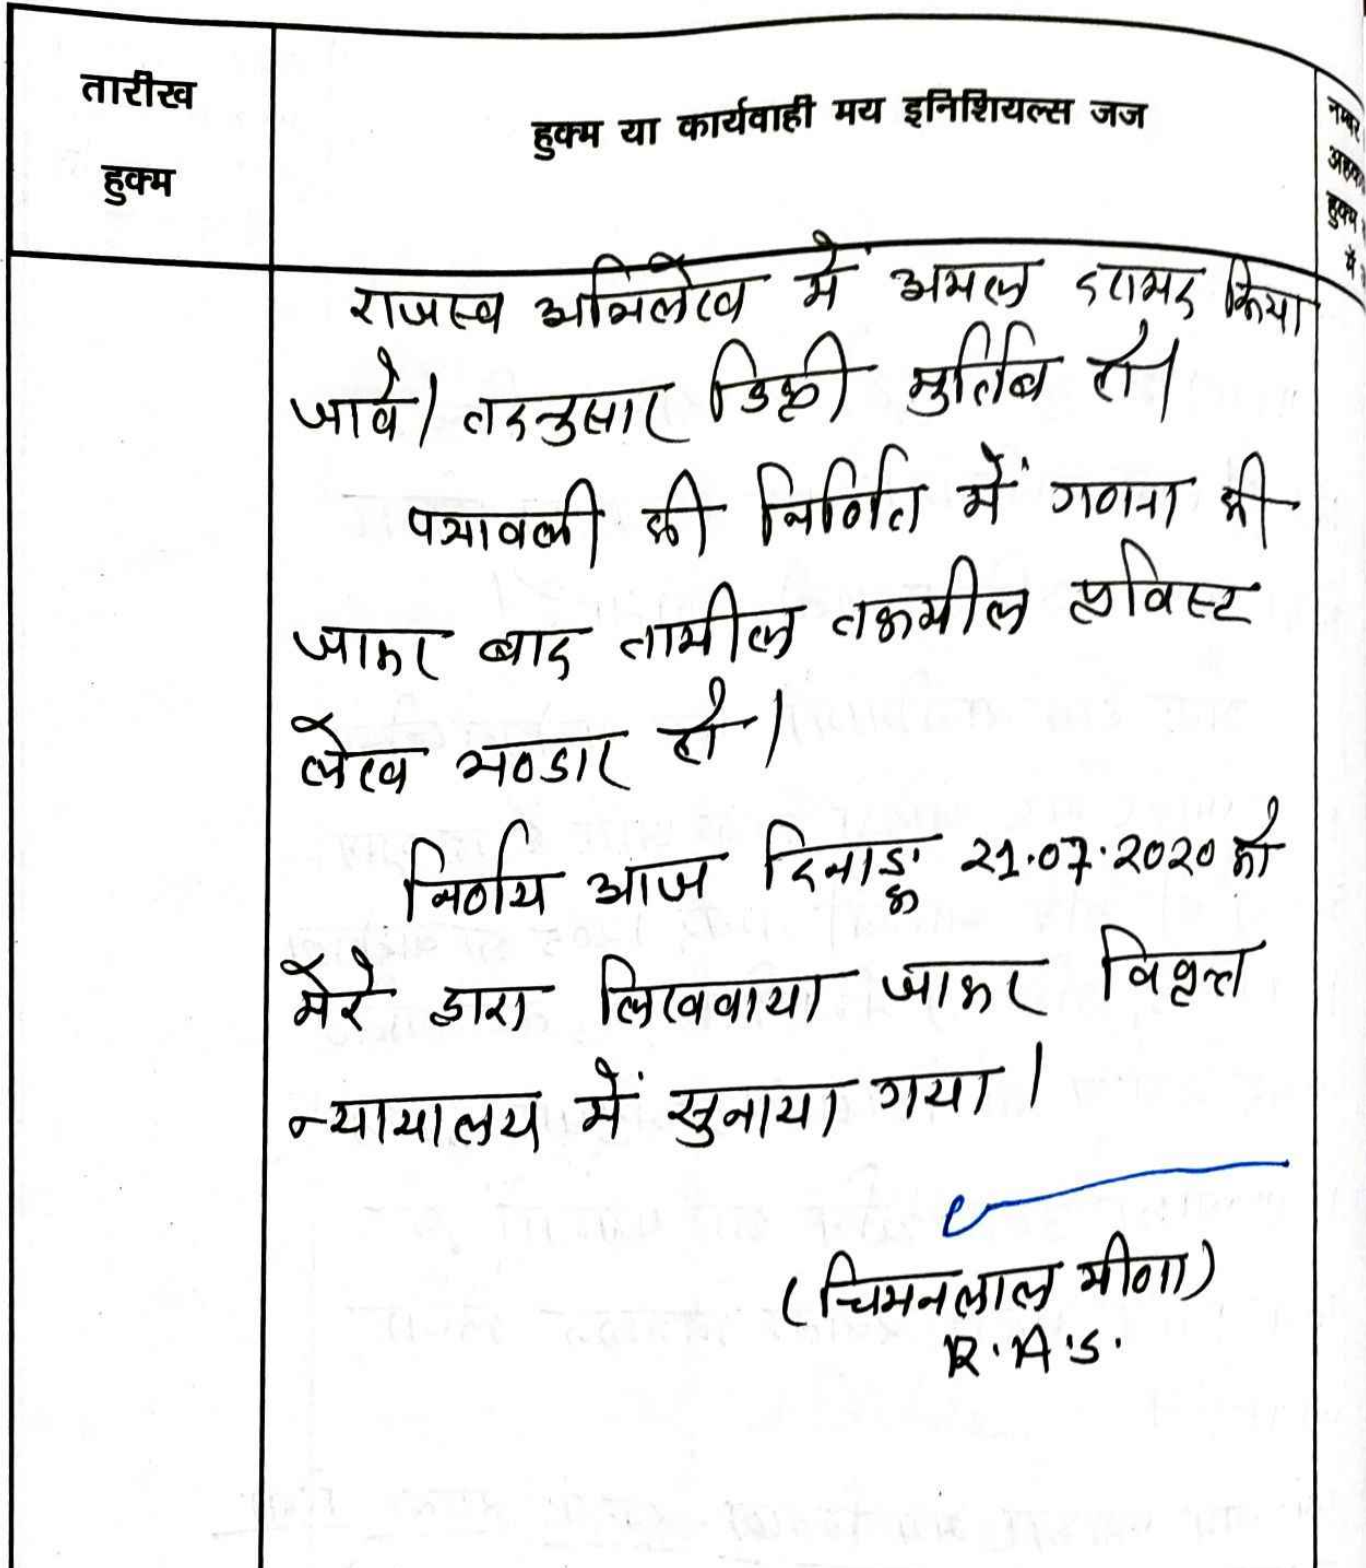 तारीख
हुक्म
हुक्म या कार्यवाही मय इनिशियल्स जज
नम्बर
हुक्म
में
राजस्व अभिलेख में अमल दरामद किया
जावे। तदनुसार डिक्री मुर्तिब हो।
पत्रावली की निर्णित में गणना की
जाकर बाद तामील तकमील प्रविस्ट
लेख भण्डार हो।
निर्णय आज दिनाङ्क 21.07.2020 को
मेरे द्वारा लिखवाया जाकर विवृत्त
न्यायालय में सुनाया गया।
(चिमनलाल मीणा)
R.A.S.